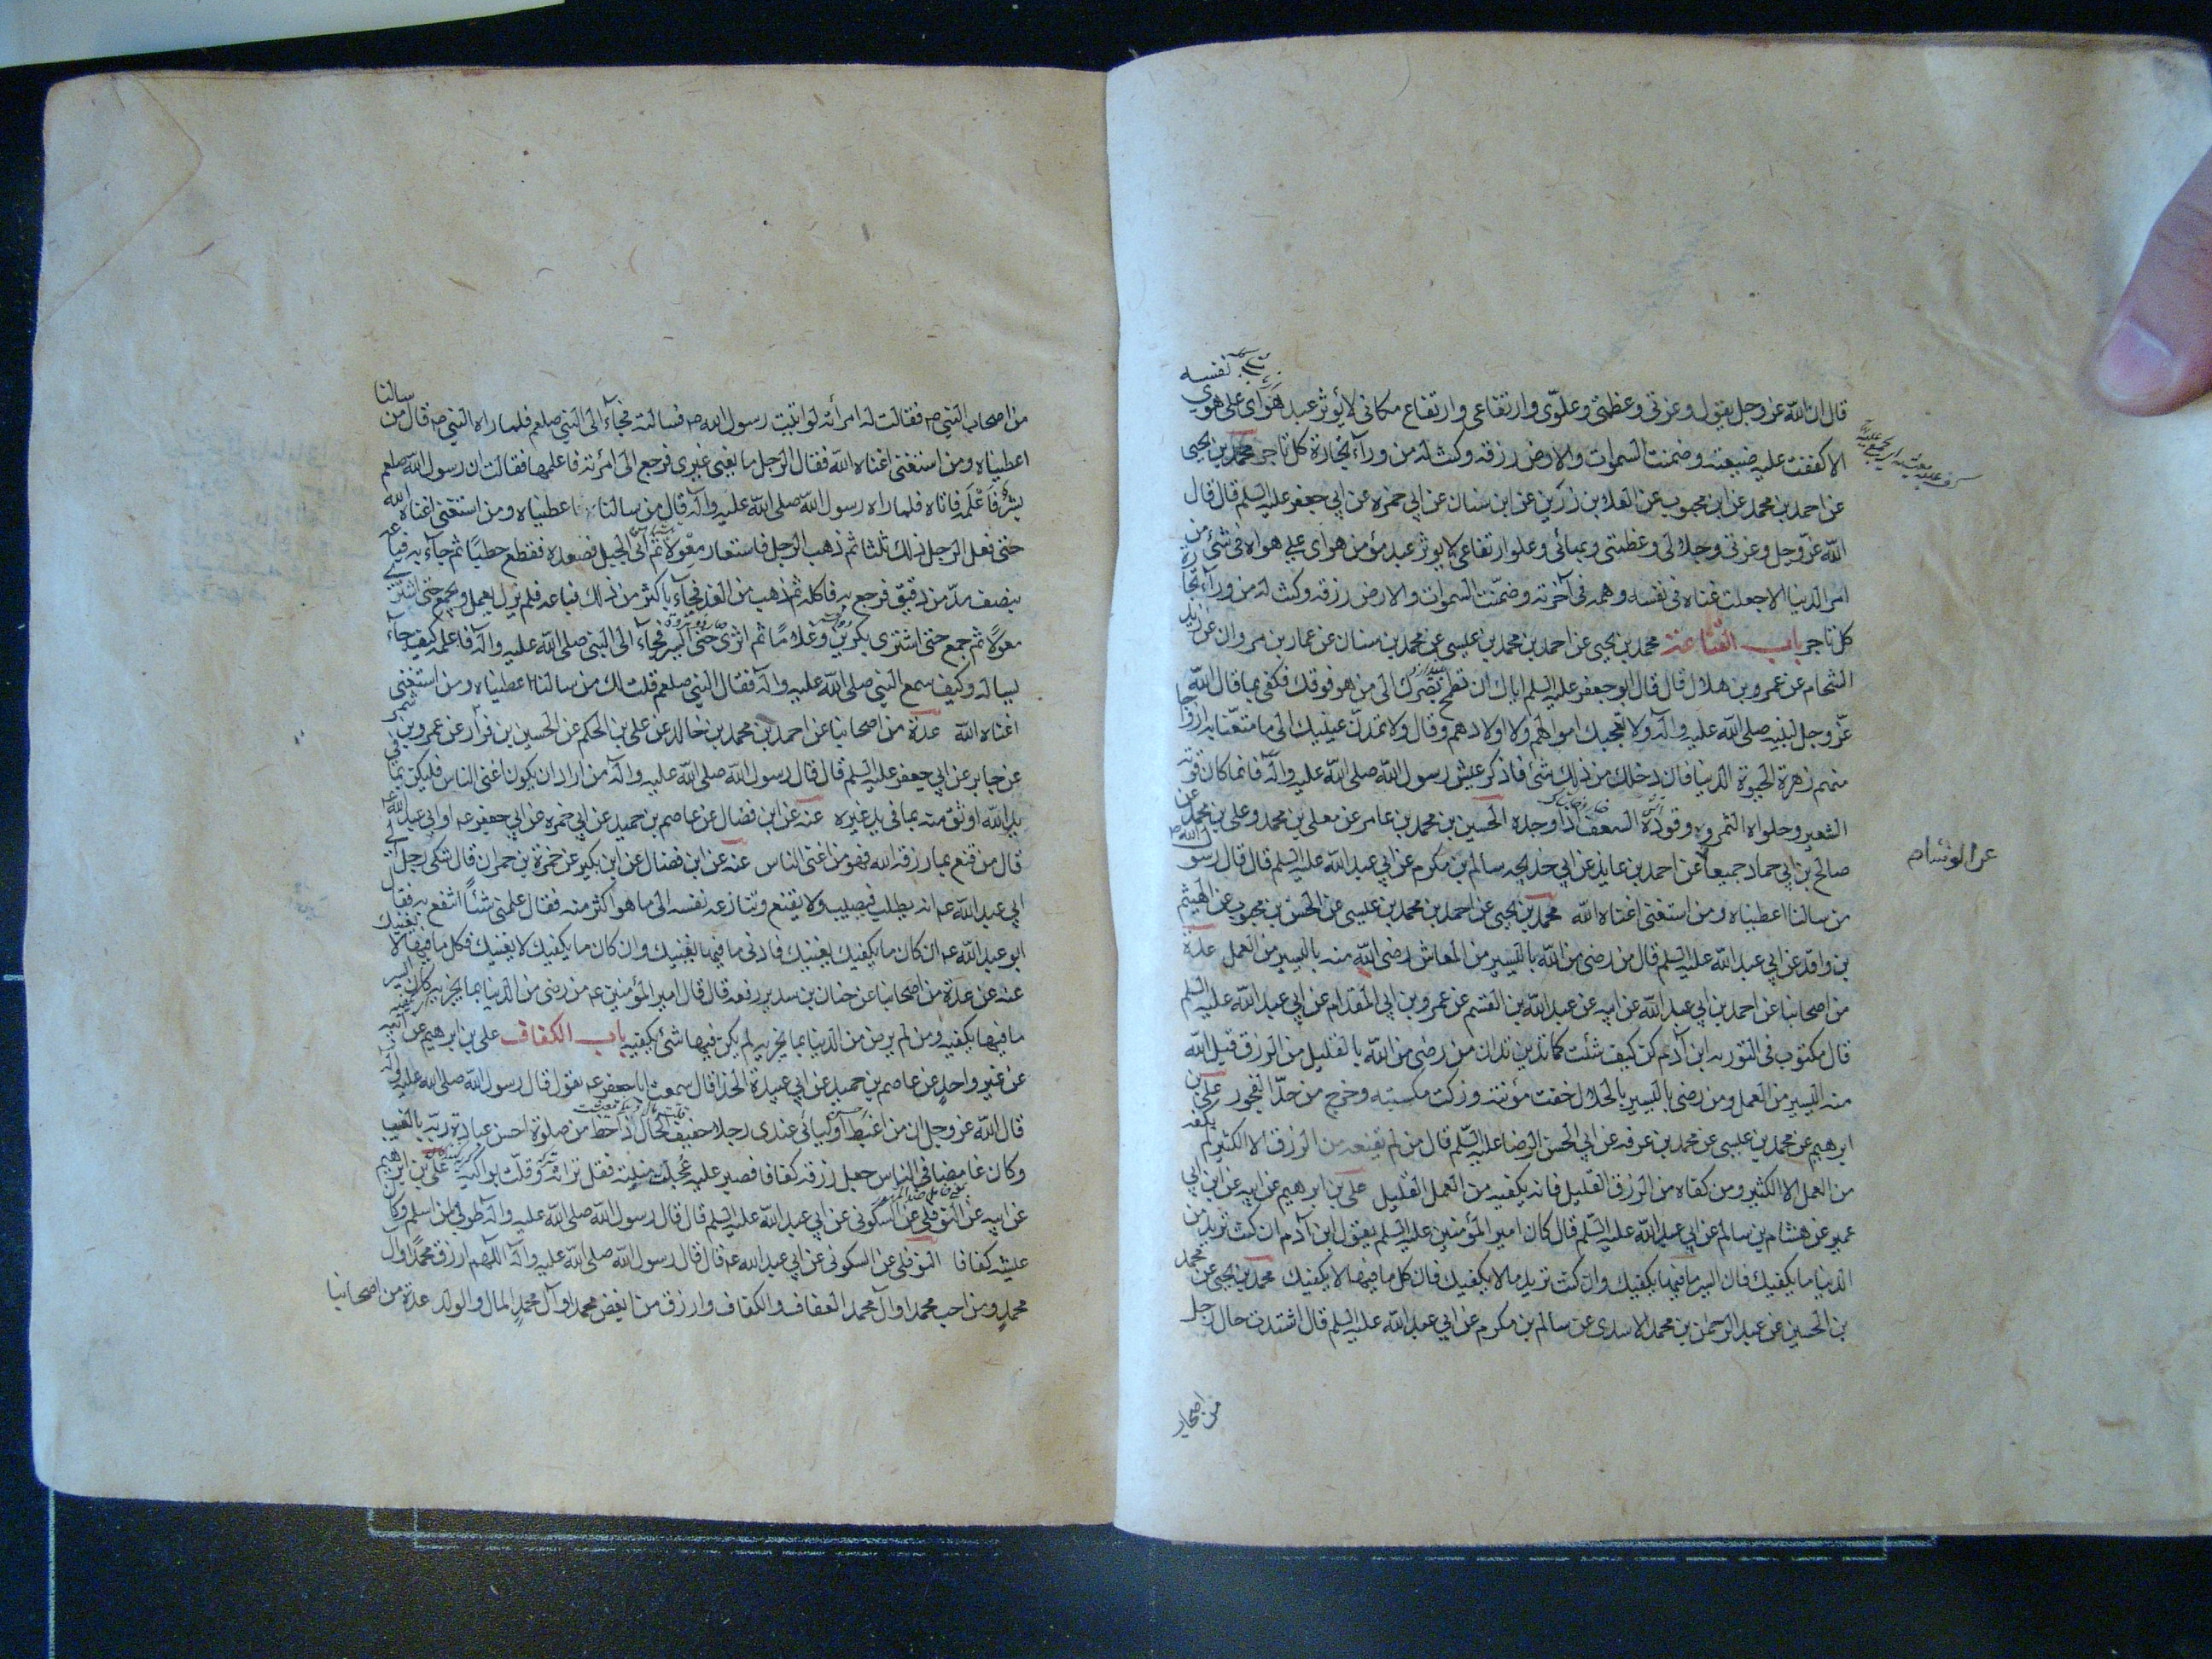 نفسه
قال ان الله عز وجل يقول وعزتي وعظمتي وعلوّي وارتفاعي وارتفاع مكاني لا يؤثر عبد هواي على هوي
الا كففت عليه ضيعته وضمنت السموات والارض رزقه وكنت له من وراء تجارة كل تاجر محمد بن يحيى
عن احمد بن محمد عن ابن محبوب عن العلا بن رزين عن ابن سنان عن ابي حمزه عن ابي جعفر عليه السلم قال قال
الله عز وجل وعزتي وجلالي وعظمتي وبهائي وعلو ارتفاعي لا يوثر عبد مؤمن هواي على هواه في شئ من
امر الدنيا الا جعلت غناه في نفسه وهمه في آخرته وضمّنت السموات والارض رزقه وكنت له من وراء تجارة
كل تاجر باب القناعة محمد بن يحيى عن احمد بن محمد بن عيسى عن محمد بن سنان عن عمار بن مروان عن زيد
الشحام عن عمرو بن هلال قال قال ابو جعفر عليه السلم اياك ان تطمح بصرك الى من هو فوقك فكفى بما قال الله
عزّ وجل لنبيه صلى الله عليه وآله ولا تعجبك اموالهم ولا اولادهم وقال ولا تمدنّ عينيك الى ما متعنا به ازواجا
منهم زهرة الحيوة الدنيا فان دخلك من ذلك شئ فاذكر عيش رسول الله صلى الله عليه وآله فانما كان قوته
الشعير وحلواه التمر ووقوده السعف اذا وجده الحسين بن محمد بن عامر عن معلى بن محمد وعلى بن محمد عن
صالح بن ابي حماد جميعا عن احمد بن عايذ عن ابي خديجه سالم بن مكرم عن ابي عبد الله عليه السلم قال قال رسول الله ص
عن الوشاء
من سالنا اعطيناه ومن استغنى اغناه الله محمد بن يحيى عن احمد بن محمد بن عيسى عن الحسن بن محبوب عن الهيثم
بن واقد عن ابي عبد الله عليه السلم قال من رضى من الله باليسير من المعاش رضى الله منه باليسير من العمل عدة
من اصحابنا عن احمد بن ابي عبد الله عن ابيه عن عبد الله بن القسم عن عمرو بن ابي المقدام عن ابي عبد الله عليه السلم
قال مكتوب في التوريه ابن آدم كن كيف شئت كما تدين تدان من رضى من الله بالقليل من الرزق قبل الله
منه اليسير من العمل ومن رضى باليسير بالحلال خفت مؤنته وزكت مكسبته وخرج من حدّ الفجور على بن
ابرهيم عن محمد بن عيسى عن محمد بن عرفه عن ابي الحسن الرضا عليه السّلم قال من لم يقنعه من الرزق الا الكثير لم يكفه
من العمل الا الكثير ومن كفاه من الرزق القليل فانه يكفيه من العمل القليل على بن ابرهيم عن ابيه عن ابن ابي
عمير عن هشام بن سالم عن ابي عبد الله عليه السّلم قال كان امير المؤمنين عليه السلم يقول ابن آدم ان كنت تريد من
الدنيا ما يكفيك فان ايسر ما فيها يكفيك وان كنت تريد ما لا يكفيك فان كل ما فيها لا يكفيك محمد بن يحيى عن محمد
بن الحسين عن عبد الرحمن بن محمد الاسدى عن سالم بن مكرم عن ابي عبد الله عليه السلم قال اشتدت حال رجل
من اصحاب
من اصحاب النبي ص فقالت له امرأته لو اتيت رسول الله ص فسالته فجاء الى النبي صلعم فلما راه النبي ص قال من سالنا
اعطيناه ومن استغنى اغناه الله فقال الرجل ما يعنى غيرى فرجع الى امرأته فاعلمها فقالت ان رسول الله صلعم
بشر فاَعْلمه فاتاه فلما راه رسول الله صلى الله عليه وآله قال من سالنا اعطيناه ومن استغنى اغناه الله
حتى فعل الرجل ذلك ثلثا ثم ذهب الرجل فاستعار معْولا ثم اتى الجبل فصعده فقطع حطبًا ثم جاء به فباعه
بنصف مدّ من دقيق فرجع به فاكله ثم ذهب من الغد فجاء باكثر من ذلك فباعه فلم يزل يعمل ويجمع حتى اشترى
معولًا ثم جمع حتى اشترى بكرين وغلامًا ثم اثرى حتى ايسر فجاء الى النبي صلى الله عليه وآله فاعلمه كيف جاء
يساله وكيف سمع النبي صلى الله عليه وآله فقال النبي صلعم قلت لك من سالنا اعطيناه ومن استغنى
اغناه الله عدة من اصحابنا عن احمد بن محمد بن خالد عن على بن الحكم عن الحسين بن فرار عن عمرو بن شمر
عن جابر عن ابي جعفر عليه السلم قال قال رسول الله صلى الله عليه وآله من اراد ان يكون اغنى الناس فليكن بما في
يد الله اوثق منه بما في يد غيره عنه عن ابن فضال عن عاصم بن حميد عن ابي حمزه عن ابي جعفر ع او ابي عبد الله ع
قال من قنع بما رزقه الله فهو من اغنى الناس عنه عن ابن فضال عن ابن بكير عن حمزة بن حمران قال شكى رجل الى
ابي عبد الله ع انه يطلب فيصيب ولا يقنع وتنازعه نفسه الى ما هو اكثر منه فقال علمني شئاً انتفع به فقال
ابو عبد الله ع ان كان ما يكفيك يغنيك فادنى ما فيها يغنيك وان كان ما يكفيك لا يغنيك فكل ما فيها لا يغنيك
عنه عن عدة من اصحابنا عن حنان بن سدير رفعه قال قال امير المؤمنين ع من رضى من الدنيا بما يجزيه كان ايسر
ما فيها يكفيه ومن لم يرض من الدنيا بما يجزيه لم يكن فيها شئ يكفيه باب الكفاف على بن ابرهيم عن ابيه
عن غير واحدٍ عن عاصم بن حميد عن ابي عبيدة الحذا قال سمعت ابا جعفر ع يقول قال رسول الله صلى الله عليه وآله
قال الله عز وجل ان من اغبط اوليائى عندى رجلا خفيف الحال ذا حظ من صلوة احسن عبادة ربّه بالغيب
وكان غامضا في الناس جعل رزقه كفافا فصبر عليه عُجلت منيته فقل تراثه وقلّت بواكيه على بن ابرهيم
عن ابيه عن النوفلى عن السكونى عن ابي عبد الله عليه السلم قال قال رسول الله صلى الله عليه وآله طوبى لمن اسلم وكان
عيشه كفافا النوفلى عن السكونى عن ابي عبد الله ع قال قال رسول الله صلى الله عليه وآله اللهم ارزق محمدًا وآل
محمدٍ ومن احب محمدا وآل محمد العفاف والكفاف وارزق من ابغض محمدا وآل محمدٍ المال والولد عدة من اصحابنا